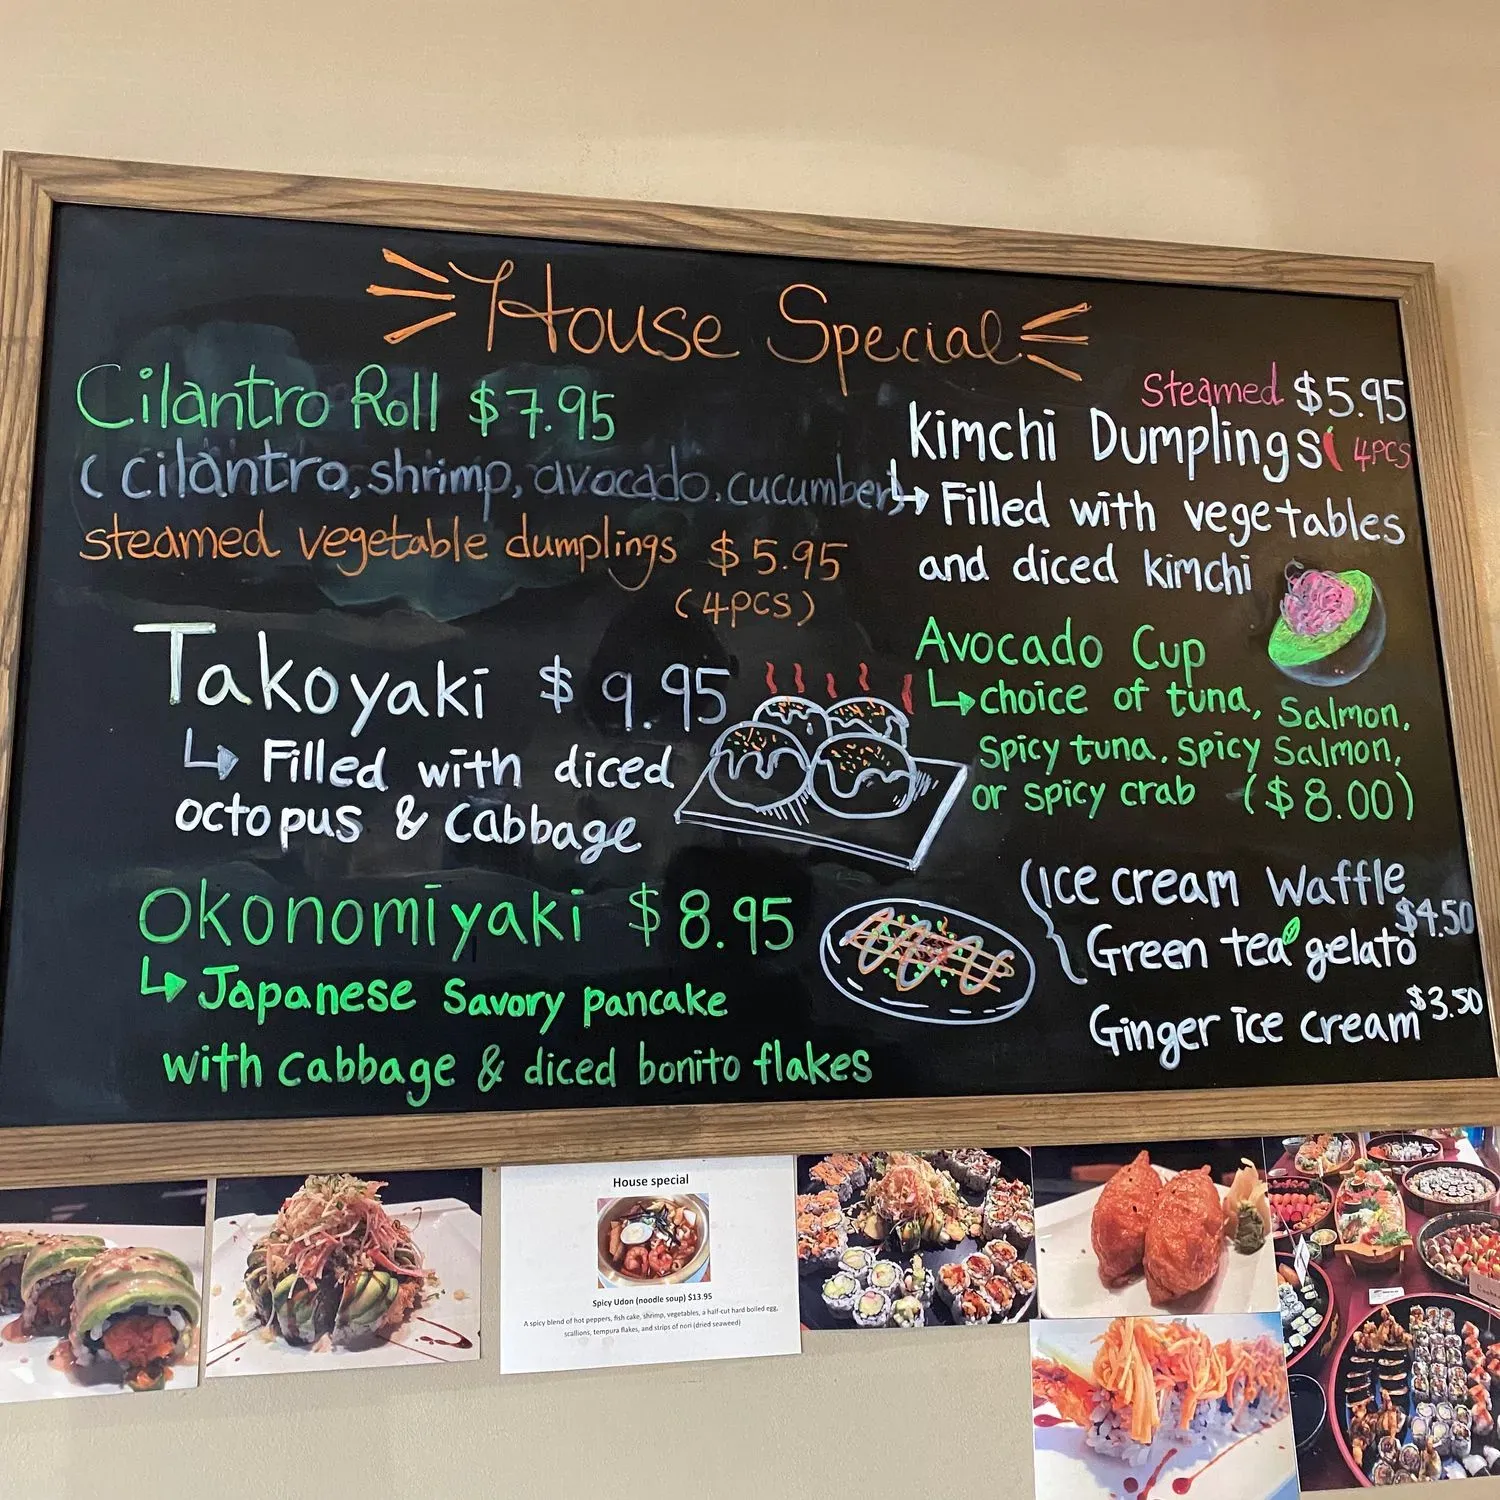 House Special
Cilantro Roll $7.95
(cilantro, shrimp, avocado, cucumber)
steamed vegetable dumplings $5.95
(4pcs)
Takoyaki $9.95
↳ Filled with diced
octopus & Cabbage
Okonomiyaki $8.95
↳ Japanese Savory pancake
with cabbage & diced bonito flakes
Steamed $5.95
Kimchi Dumplings 4PCS
↳ Filled with vegetables
and diced kimchi
Avocado Cup
↳ choice of tuna, Salmon,
Spicy tuna, Spicy Salmon,
or spicy crab ($8.00)
Ice cream Waffle
$4.50
Green tea gelato
Ginger ice cream $3.50
House special
Spicy Udon (noodle soup) $13.95
A spicy blend of hot peppers, fish cake, shrimp, vegetables, a half-cut hard boiled egg,
scallions, tempura flakes, and strips of nori (dried seaweed)